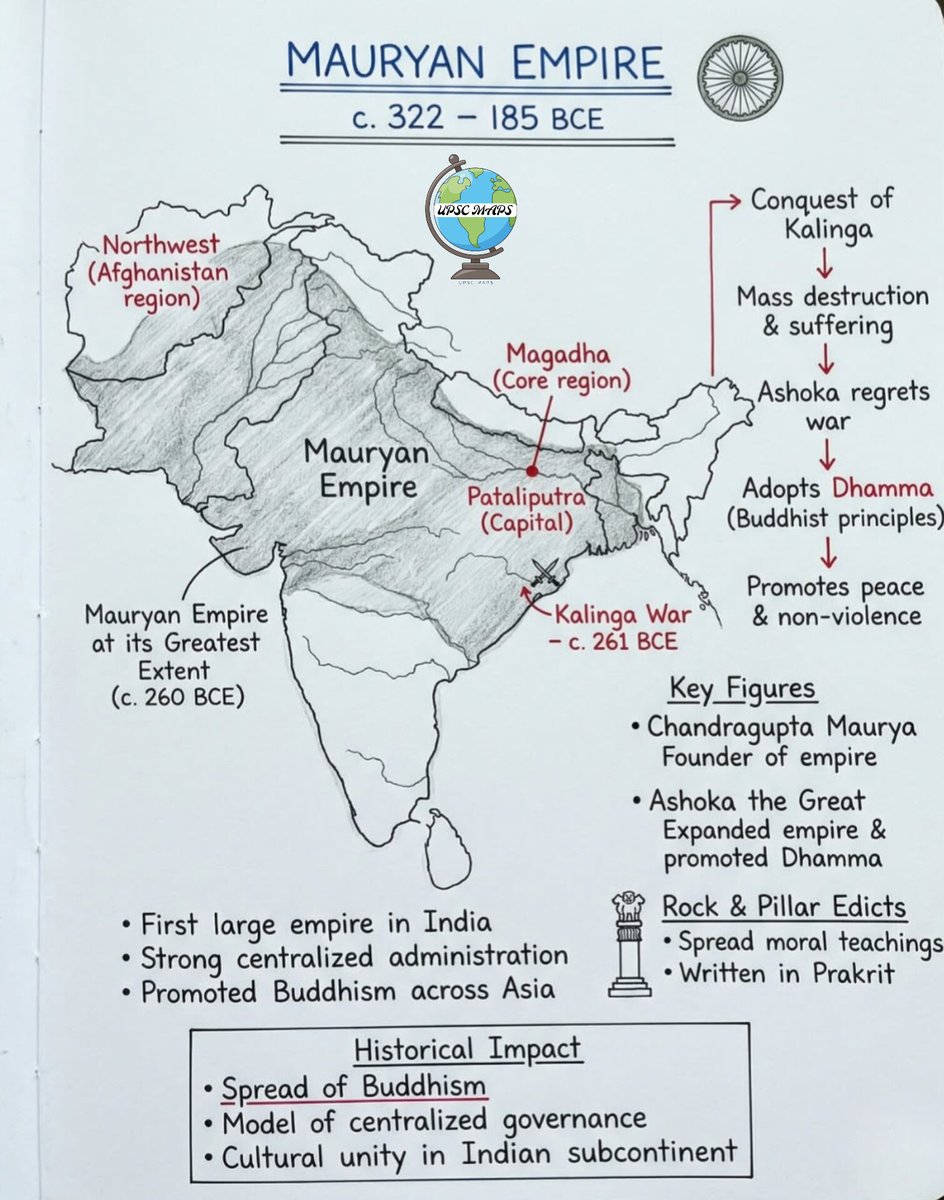 MAURYAN EMPIRE
c. 322 – 185 BCE
UPSC MAPS
UPSC MAPS
Northwest
(Afghanistan
region)
Magadha
(Core region)
Mauryan
Empire
Pataliputra
(Capital)
Kalinga War
– c. 261 BCE
Mauryan Empire
at its Greatest
Extent
(c. 260 BCE)
Conquest of
Kalinga
Mass destruction
& suffering
Ashoka regrets
war
Adopts Dhamma
(Buddhist principles)
Promotes peace
& non-violence
Key Figures
• Chandragupta Maurya
Founder of empire
• Ashoka the Great
Expanded empire &
promoted Dhamma
Rock & Pillar Edicts
• Spread moral teachings
• Written in Prakrit
• First large empire in India
• Strong centralized administration
• Promoted Buddhism across Asia
Historical Impact
• Spread of Buddhism
• Model of centralized governance
• Cultural unity in Indian subcontinent